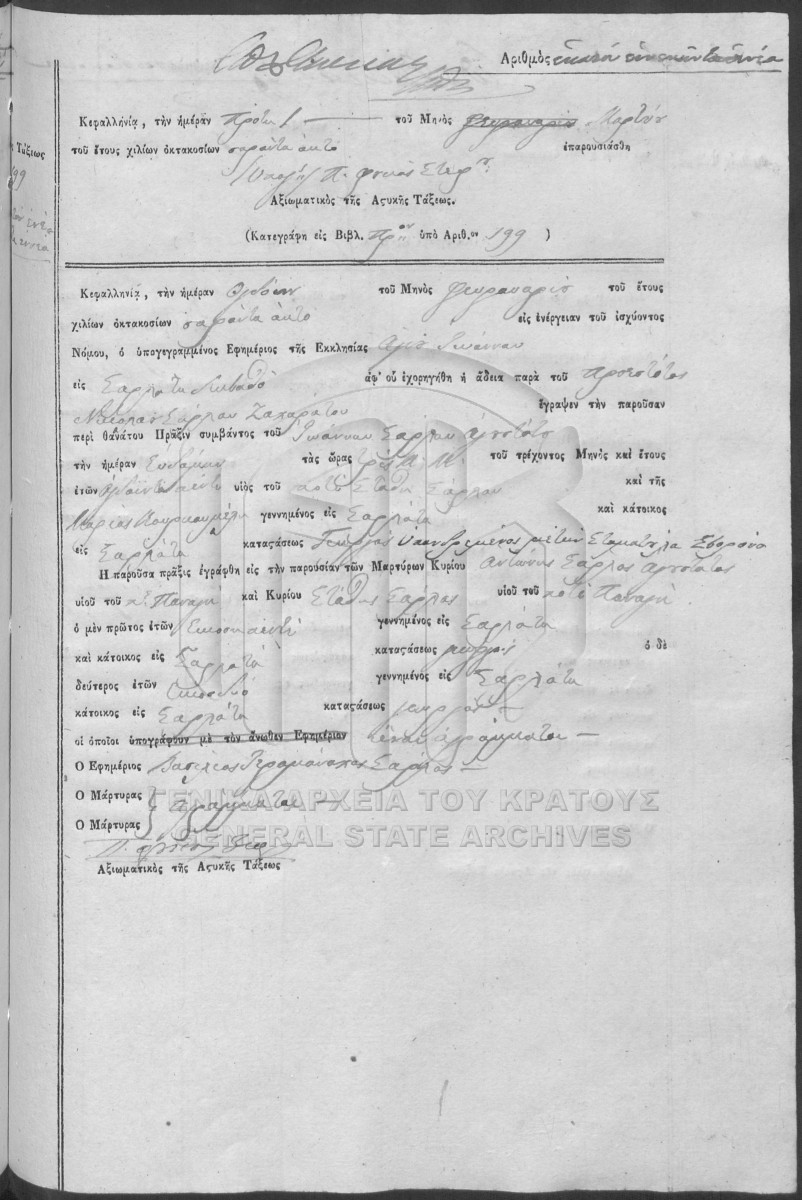 Ἀριθμὸς ἑκατὸν ἐνενήντα ἐννέα
Κεφαλληνίᾳ, τὴν ἡμέραν Πρότη 1 τοῦ Μηνὸς Φευρουαρίου Μαρτίου
τοῦ ἔτους χιλίων ὀκτακοσίων σαράντα ὀκτό ἐπαρουσιάσθη
Ἀξιωματικὸς τῆς Ἀςυκῆς Τάξεως.
(Κατεγράφη εἰς Βιβλ. Προν ὑπὸ Ἀριθ.ον 199 )
Τάξεως
199
Κεφαλληνίᾳ, τὴν ἡμέραν Ὀγδόην τοῦ Μηνὸς Φευρουαρίου τοῦ ἔτους
χιλίων ὀκτακοσίων σαράντα ὀκτό εἰς ἐνέργειαν τοῦ ἰσχύοντος
Νόμου, ὁ ὑπογεγραμμένος Ἐφημέριος τῆς Ἐκκλησίας Ἁγίου Ἰωάννου
εἰς Σαρλάτα Λιβαθὸ ἀφ' οὗ ἐχορηγήθη ἡ ἄδεια παρὰ τοῦ Προεστότος
Νικολάου Σάρλου Ζαχαράτου ἔγραψεν τὴν παροῦσαν
περὶ θανάτου Πρᾶξιν συμβάντος τοῦ Ἰωάννου Σάρλου
τὴν ἡμέραν Ἑύδόμην τὰς ὥρας τρῖς Π. Μ. τοῦ τρέχοντος Μηνὸς καὶ ἔτους
ἐτῶν Ὀγδόντα πέντε υἱὸς τοῦ ποτὲ Στάθη Σάρλου καὶ τῆς
Μαρίας γεννημένος εἰς Σαρλάτα καὶ κάτοικος
εἰς Σαρλάτα καταςάσεως Γεωργὸς ὑπανδρεμένος μὲ τὴν Σταματήλα Σβορόνο
Ἡ παροῦσα πρᾶξις ἐγράφθη εἰς τὴν παρουσίαν τῶν Μαρτύρων Κυρίου Ἀντώνης Σάρλος
υἱοῦ τοῦ Παναγῆ καὶ Κυρίου Στάθης Σάρλος υἱοῦ τοῦ ποτὲ Παναγῆ
ὁ μὲν πρῶτος ἐτῶν Ἴκοσι πέντε γεννημένος εἰς Σαρλάτα
καὶ κάτοικος εἰς Σαρλάτα καταςάσεως γεωργὸς ὁ δὲ
δεύτερος ἐτῶν γεννημένος εἰς Σαρλάτα
κάτοικος εἰς Σαρλάτα καταςάσεως γεωργὸς
οἱ ὁποῖοι ὑπογράφουν μὲ τὸν ἄνωθεν Ἐφημέριον εἶναι ἀγράμματοι
Ὁ Ἐφημέριος Βασίλειος Ἱερομόναχος Σάρλος
Ὁ Μάρτυρας
ἀγράμματοι
Ὁ Μάρτυρας
Ἀξιωματικὸς τῆς Ἀςυκῆς Τάξεως
ΓΕΝΙΚΑ ΑΡΧΕΙΑ ΤΟΥ ΚΡΑΤΟΥΣ
GENERAL STATE ARCHIVES